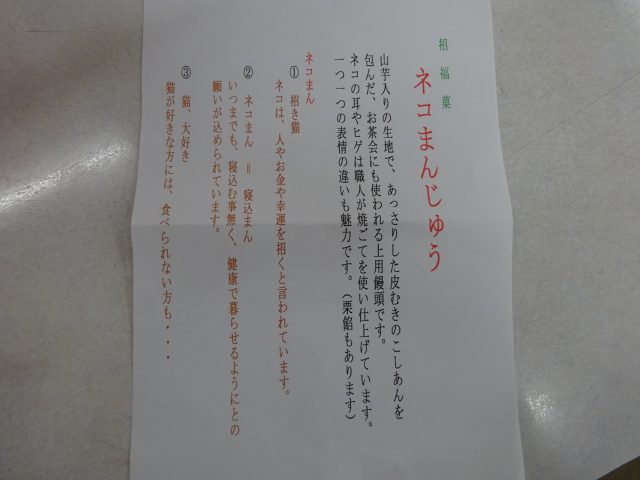 招福菓
ネコまんじゅう
山芋入りの生地で、あっさりした皮むきのこしあんを
包んだ、お茶会にも使われる上用饅頭です。
ネコの耳やヒゲは職人が焼ごてを使い仕上げています。
一つ一つの表情の違いも魅力です。（栗餡もあります）
ネコまん
① 招き猫
ネコは、人やお金や幸運を招くと言われています。
② ネコまん ＝ 寝込まん
いつまでも、寝込む事無く、健康で暮らせるようにとの
願いが込められています。
③ 猫、大好き
猫が好きな方には、食べられない方も・・・